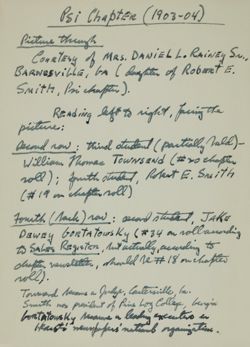 Psi Chapter (1903-04)
Picture through
Courtesy of Mrs. Daniel L. Rainey Sr.,
Barnesville, Ga (daughter of Robert E.
Smith, Psi chapter).
Reading left to right, facing the
picture:
Second row: third student (partially bald)—
William Thomas Townsend (#20 chapter
roll); fourth student, Robert E. Smith
(#19 on chapter roll)
Fourth (back) row: second student, Jake
Dewey Gortatowsky (#34 on roll according
to Sales Register but actually, according to
chapter newsletter, should be #18 on chapter
roll).
Townsend became a Judge, Cartersville, Ga.
Smith was president of Rice Log College,
Gortatowsky became a leading executive in
Hearst's newspapers' national organization.